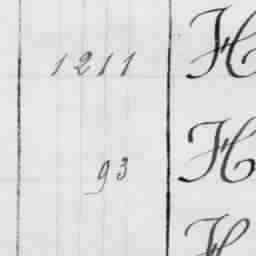 1211 H
93 H
H